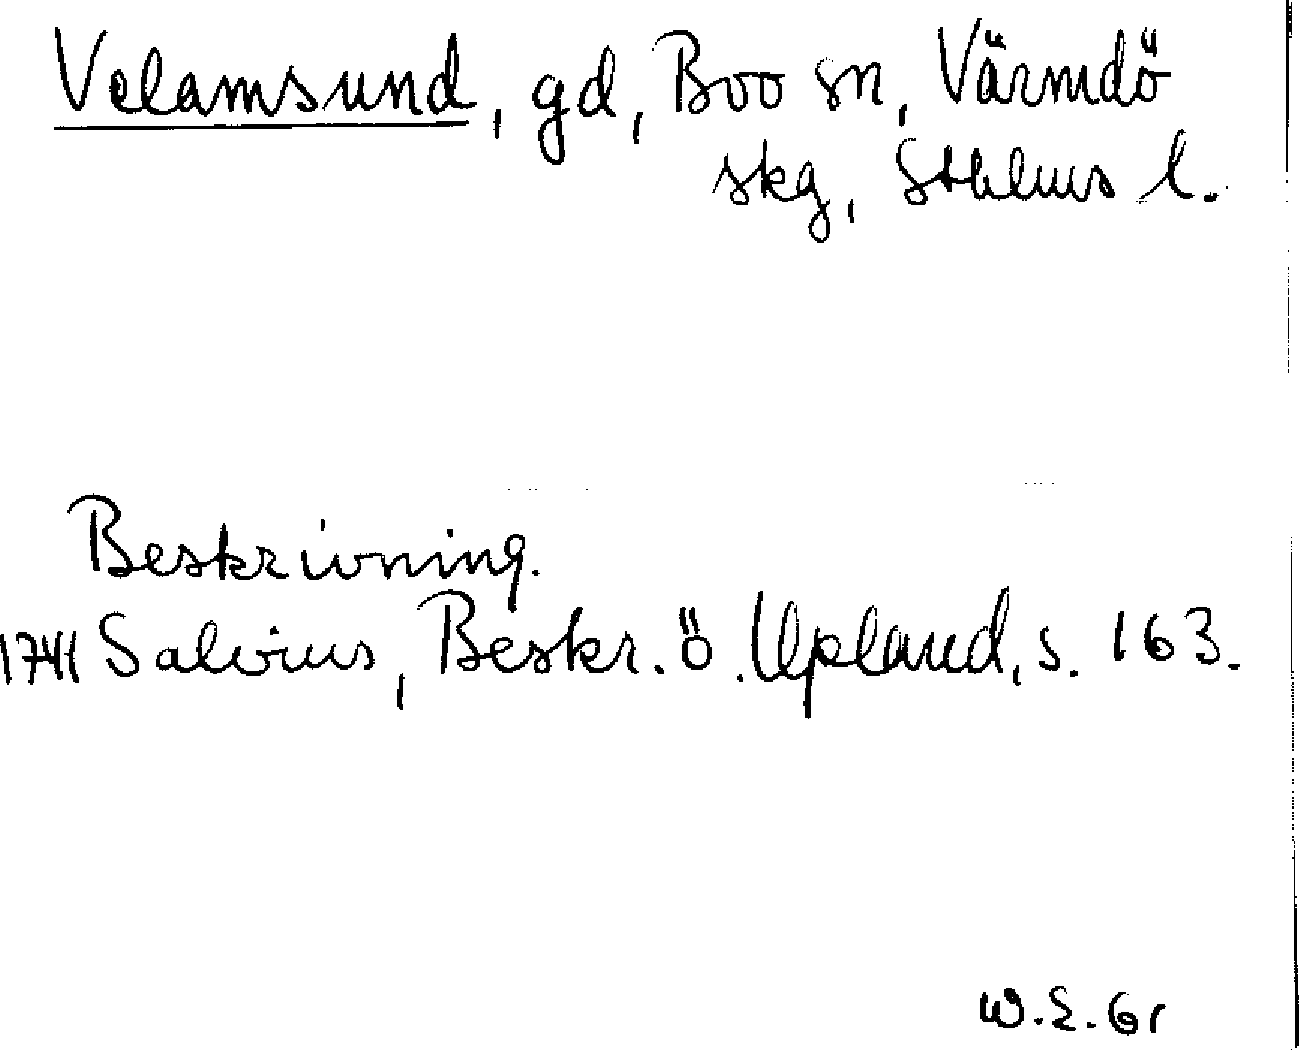 Velamsund, gd, Boo sn, Värmdö
skg, Sthlms l.
Beskrivning.
1741 Salvius, Beskr. ö. Upland, s. 163.
W.E. Gr